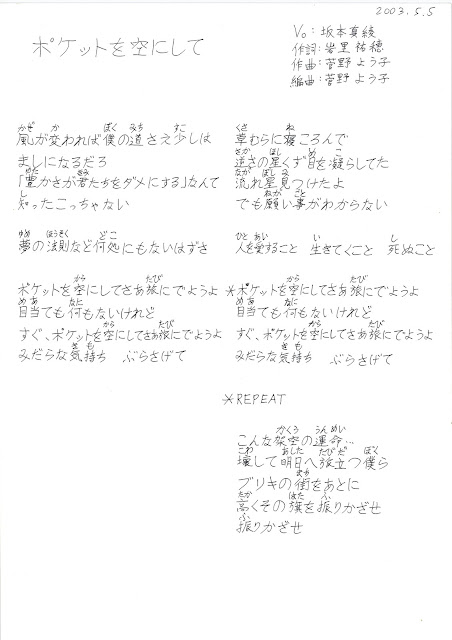 2003.5.5
ポケットを空にして
Vo:坂本真綾
作詞:岩里祐穂
作曲:菅野よう子
編曲:菅野よう子
かぜ か ぼく みち すこ
風が変われば僕の道さえ少しは
ましになるだろ
ゆた きみ
「豊かさが君たちをダメにする」なんて
し
知ったこっちゃない
ゆめ ほうそく どこ
夢の法則など何処にもないはずさ
から たび
ポケットを空にしてさあ旅にでようよ
めあ なに
目当ても何もないけれど
から たび
すぐ、ポケットを空にしてさあ旅にでようよ
きも
みだらな気持ち ぶらさげて
くさ ね
草むらに寝ころんで
さか ほし め こ
逆さの星くず目を凝らしてた
なが ぼし み
流れ星見つけたよ
ねが ごと
でも願い事がわからない
ひと あい い し
人を愛すること 生きてくこと 死ぬこと
から たび
＊ポケットを空にしてさあ旅にでようよ
めあ なに
目当ても何もないけれど
から たび
すぐ、ポケットを空にしてさあ旅にでようよ
きも
みだらな気持ち ぶらさげて
＊REPEAT
かくう うんめい
こんな架空の運命…
こわ あした たびだ ぼく
壊して明日へ旅立つ僕ら
まち
ブリキの街をあとに
たか はた ふ
高くその旗を振りかざせ
ふ
振りかざせ